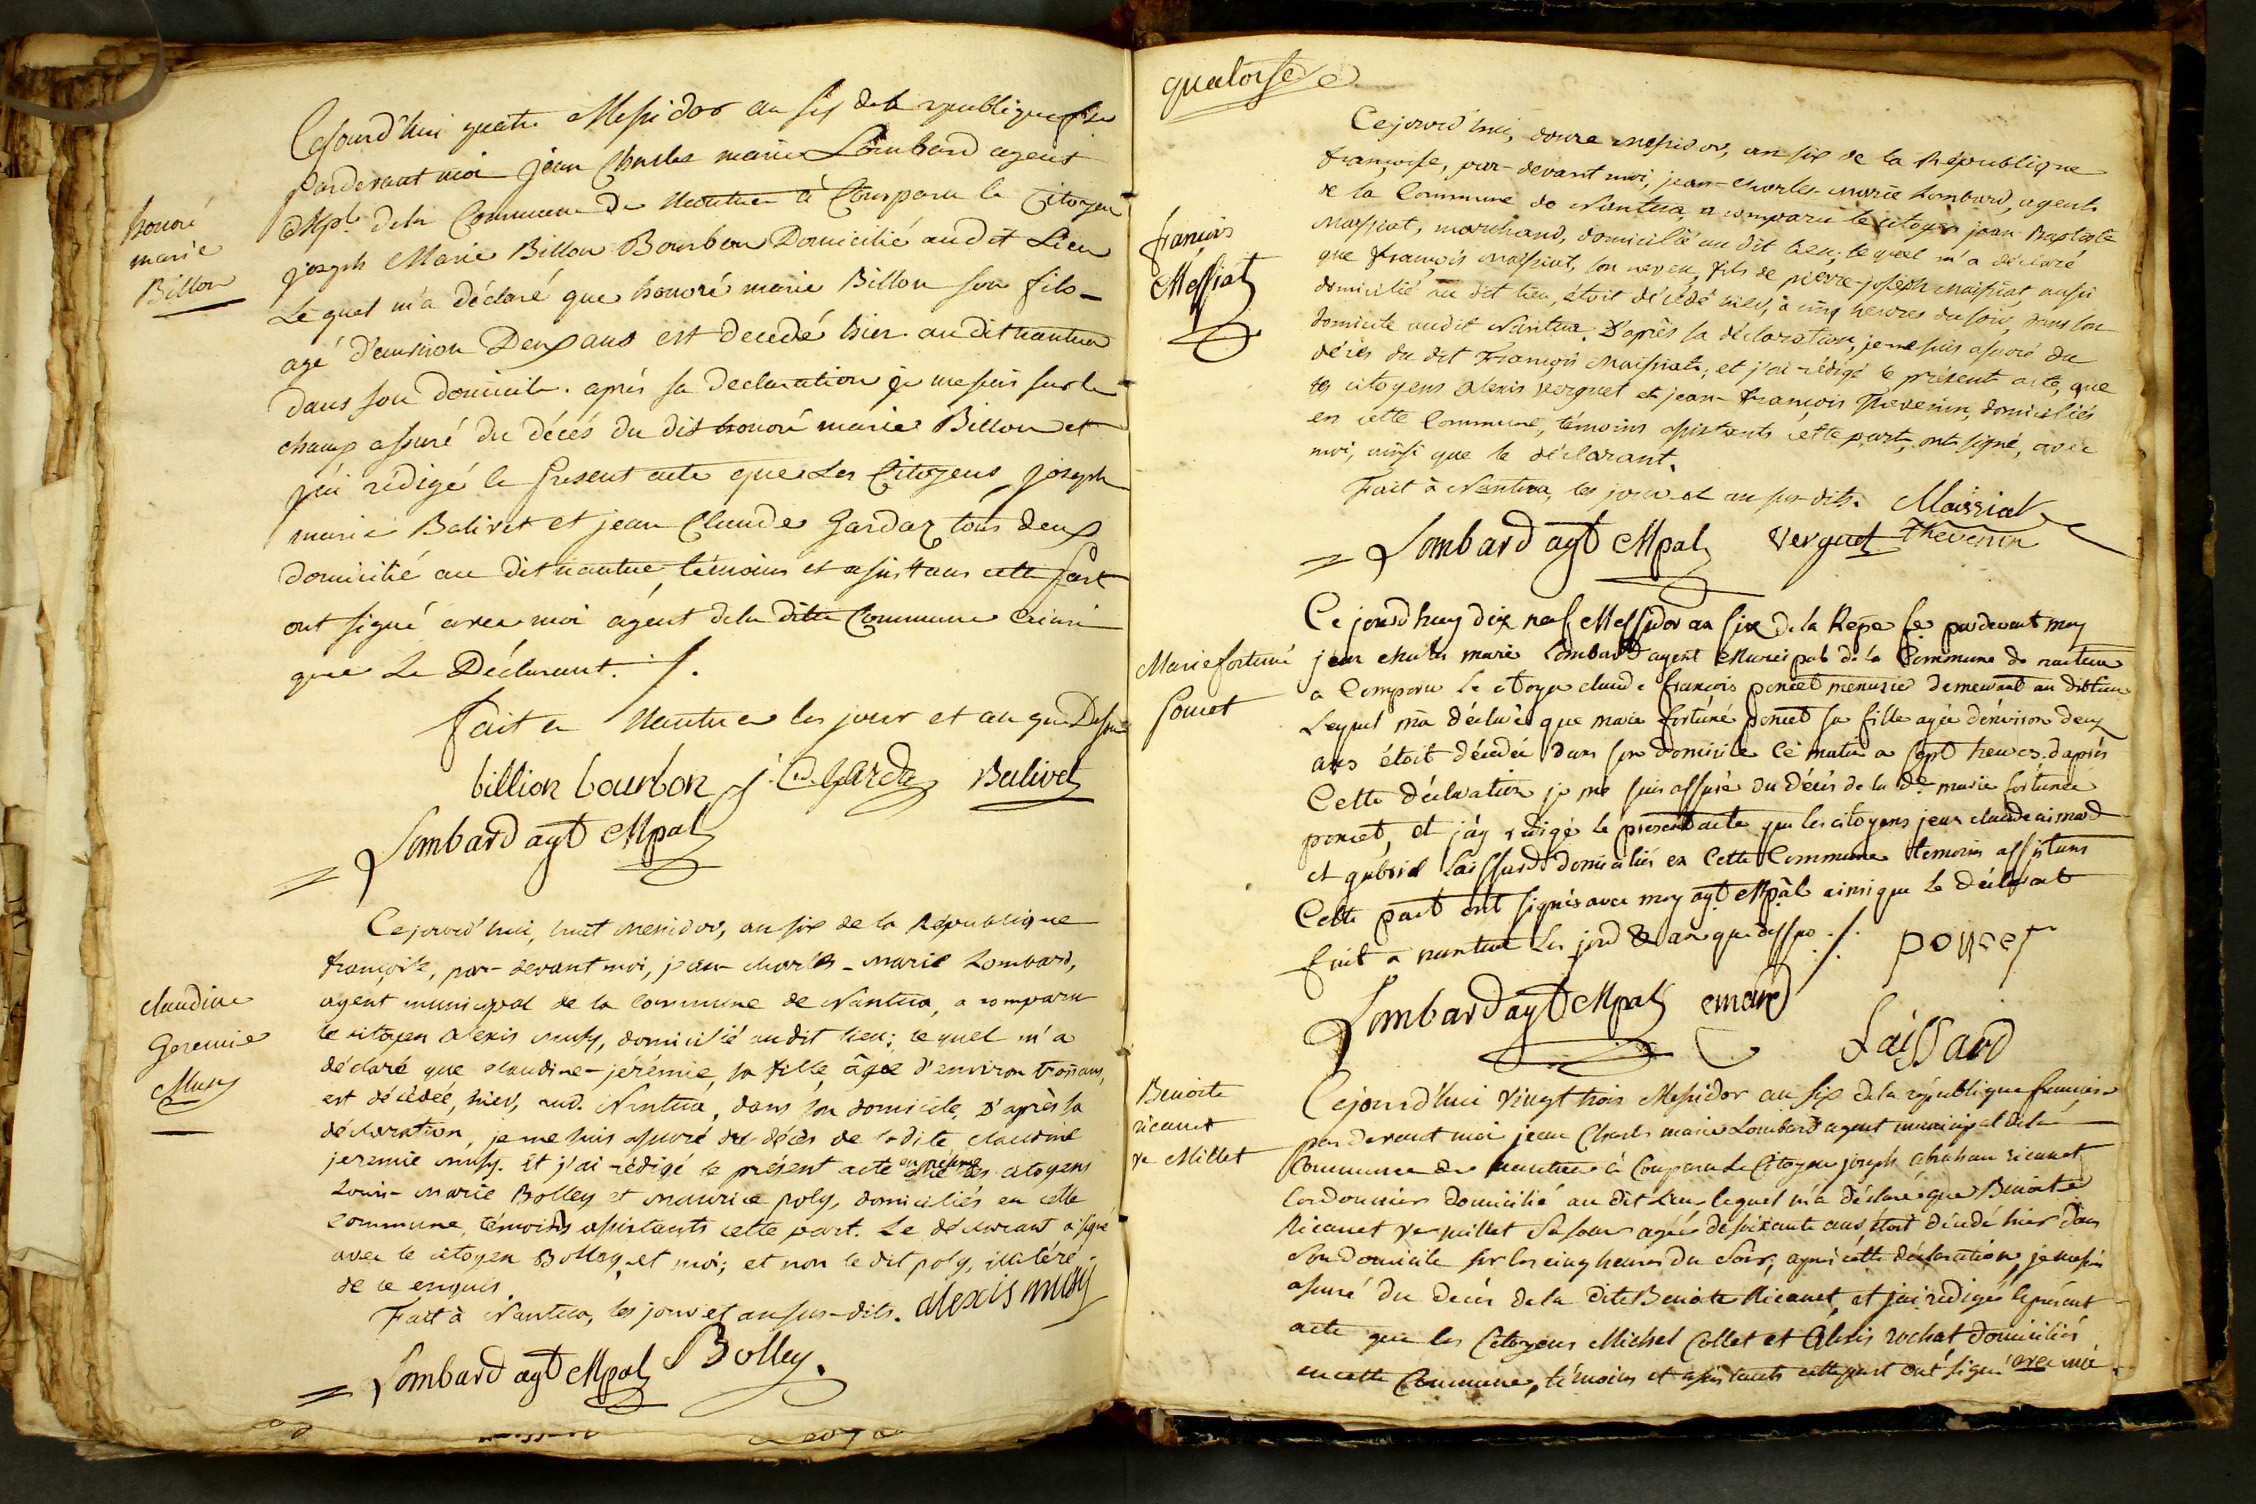 honoré
marie
Billon
Cejourd'hui quatre Messidor an six de la republique fse
Pardevant moi jean Charles marie Lombard agent
Mpl. de la Commune de Nantua à Comparu le Citoyen
joseph Marie Billon Bourbon Domicilié audit Lieu
Lequel m'a déclaré que honoré marie Billon son fils
agé d'environ Deux ans est decedé hier audit nantua
dans son domicile. aprés sa declaration je me suis sur le
champ assuré du décés du dit honoré marie Billon et
j'ai rédigé le present acte que Les Citoyens joseph
marie Balivet et jean Claude Gardaz tous deux
domicilié au dit nantua, témoins et assistans cette part
ont signé avec moi agent de la ditte Commune Ainsi
que Le Déclarant ./.
fait a Nantua les jour et an que Dessus
billion bourbon j. C. Garda Balivet
= Lombard agt Mpal
claudine
Geremie
Musy
Cejourd'hui, huit messidor, an six de la République
françoise, par-devant moi, jean-charles-marie Lombard,
agent municipal de la commune de Nantua, a comparu
le citoyen alexis musy, domicilié audit lieu; lequel m'a
déclaré que claudine-jérémie, sa fille, âgée d'environ trois ans,
est décédée, hier, aud. Nantua, dans son domicile. D'après sa
déclaration, je me suis assuré du décès de ladite claudine
jeremie musy. Et j'ai rédigé le présent acte en présence des citoyens
Louis-marie Bolley et maurice poly, domiciliés en cette
commune, témoins assistants cette part. Le déclarant a signé
avec le citoyen Bolley, et moi; et non le dit poly, illitéré
de ce enquis
Fait à Nantua, les jour et an sus-dits. alexis musy
= Lombard agt Mpal Bolley.
quatorse
françois
Messiat
Cejourd'hui, douze messidor, an six de la République
françoise, par-devant moi, jean-charles-marie Lombard, agent
de la Commune de Nantua, a comparu le citoyen jean Baptiste
Maissiat, marchand, domicilié au dit lieu; lequel m'a déclaré
que françois Maissiat, son neveu, fils de pierre-joseph Maissiat, aussi
domicilié au dit lieu, étoit décédé hier, à cinq heures du soir, dans son
domicile audit Nantua. D'après sa déclaration, je me suis assuré du
décès du dit François Maissiat; et j'ai rédigé le présent acte, que
les citoyens alexis verguet et jean-françois Thevenin, domiciliés
en cette Commune, témoins assistants cette part, ont signé, avec
moi, ainsi que le déclarant.
Fait à Nantua, les jour et an sus-dits. Maissiat
= Lombard agt Mpal verguet Thevenin
Marie fortuné
poncet
Ce jourd'huy dix neuf Messidor an six de la Repe fe pardevant moy
jean charles marie Lombard agent Municipal de la Commune de nantua
a Comparu Le citoyen claude françois poncet menusié demeurant au dit lieu
Lequel m'a déclaré que marie fortuné poncet sa fille agée d'environ deux
ans étoit décédée dans son domicile Ce matin a sept heures. d'après
Cette déclaration je me suis assuré du décés de la de marie fortunée
poncet, et j'ay rédigé le present acte que les citoyens jean claude aimard
et gabriel Laissard domiciliés en Cette Commune temoins assistans
Cette part ont signés avec moy agt Mpal ainsi que Le déclarant
fait a nantua Les jour & an que dessus ./. poncet
Lombard agt Mpal emard
Laissard
Benoite
ricanet
ve Millet
Cejourd'hui vingt trois Messidor an six de la république française
par devant moi jean Charles marie Lombard agent municipal de la
Commune de Nantua à Comparu Le Citoyen joseph abraham ricanet
Cordonnier domicilié au dit Lieu lequel m'a déclaré que Benoite
Ricanet ve millet Sa sœur agée de soixante ans, étoit décédé hier dans
Son domicile sur les cinq heures du soir, aprés cette déclaration, je me suis
assuré du décés de la dite Benoite Ricanet, et j'ai rédigé le présent
acte que les Citoyens Michel Collet et Alexis rochat domiciliés
en cette Commune, témoins et assistants cette part ont signé avec moi